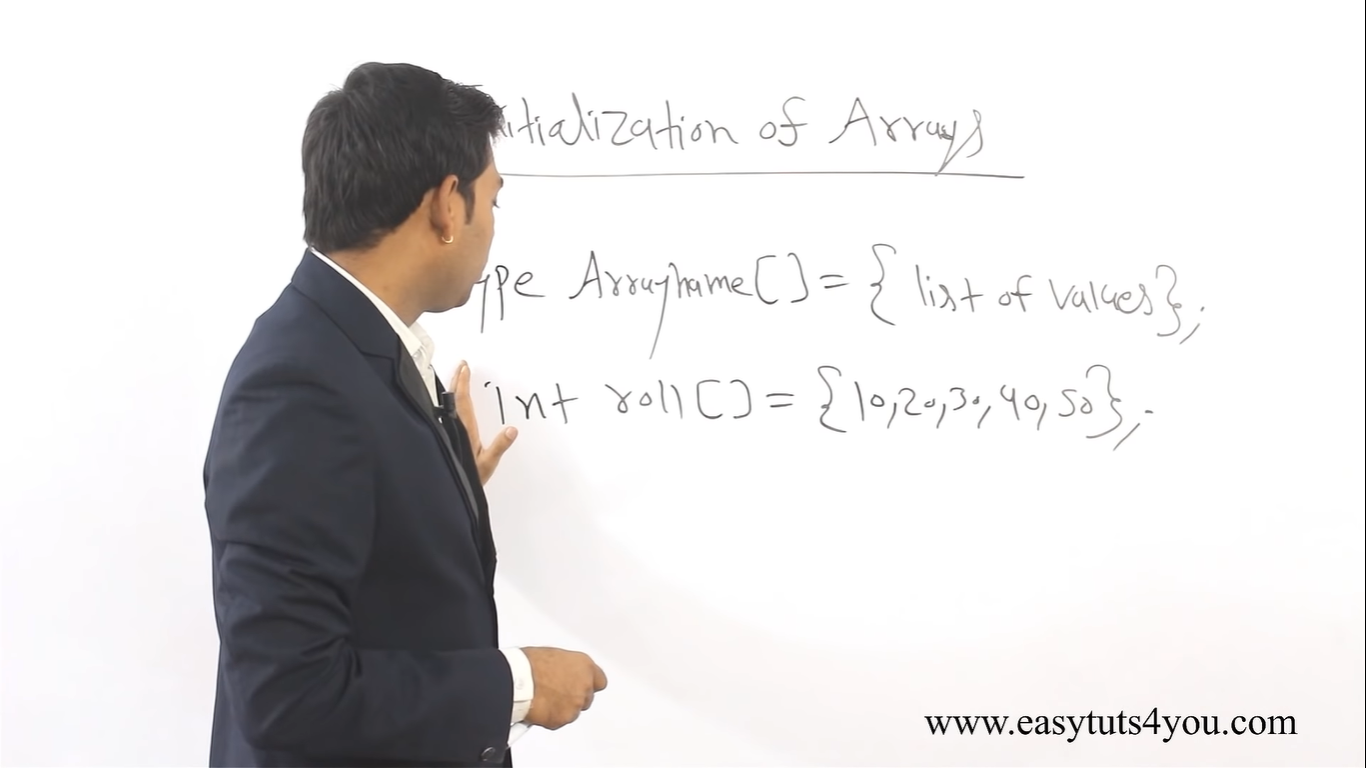 itialization of Arrays
ype Arrayname[] = { list of values};
int roll[] = {10,20,30,40,50};
www.easytuts4you.com